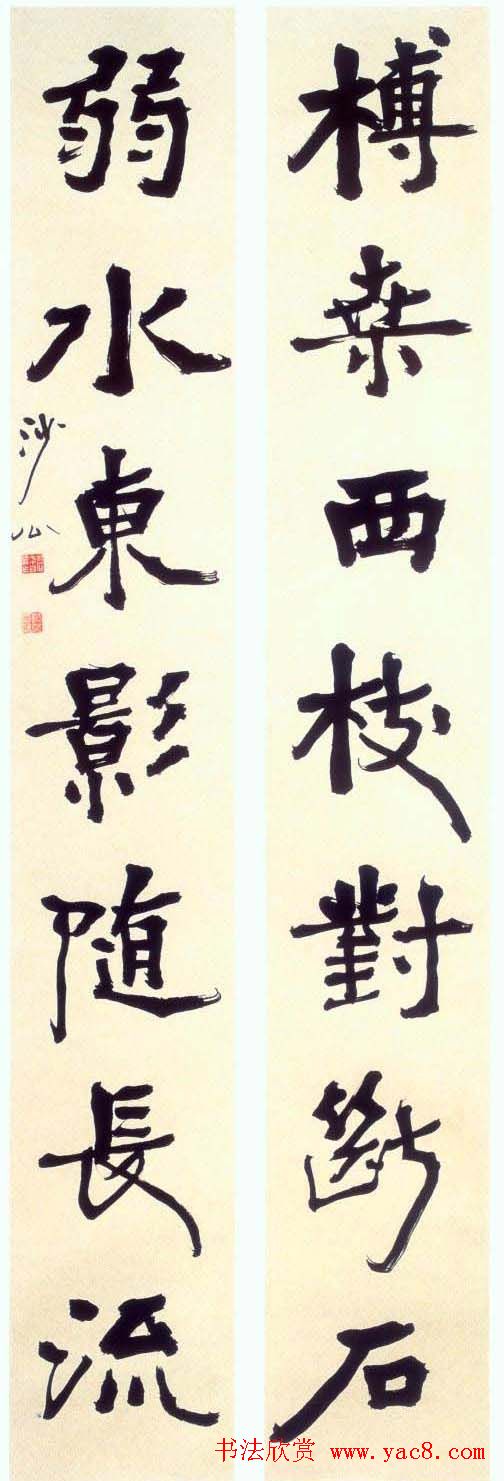 榑桒西枝對斷石
弱水東影随長流
沙公
书法欣赏 www.yac8.com